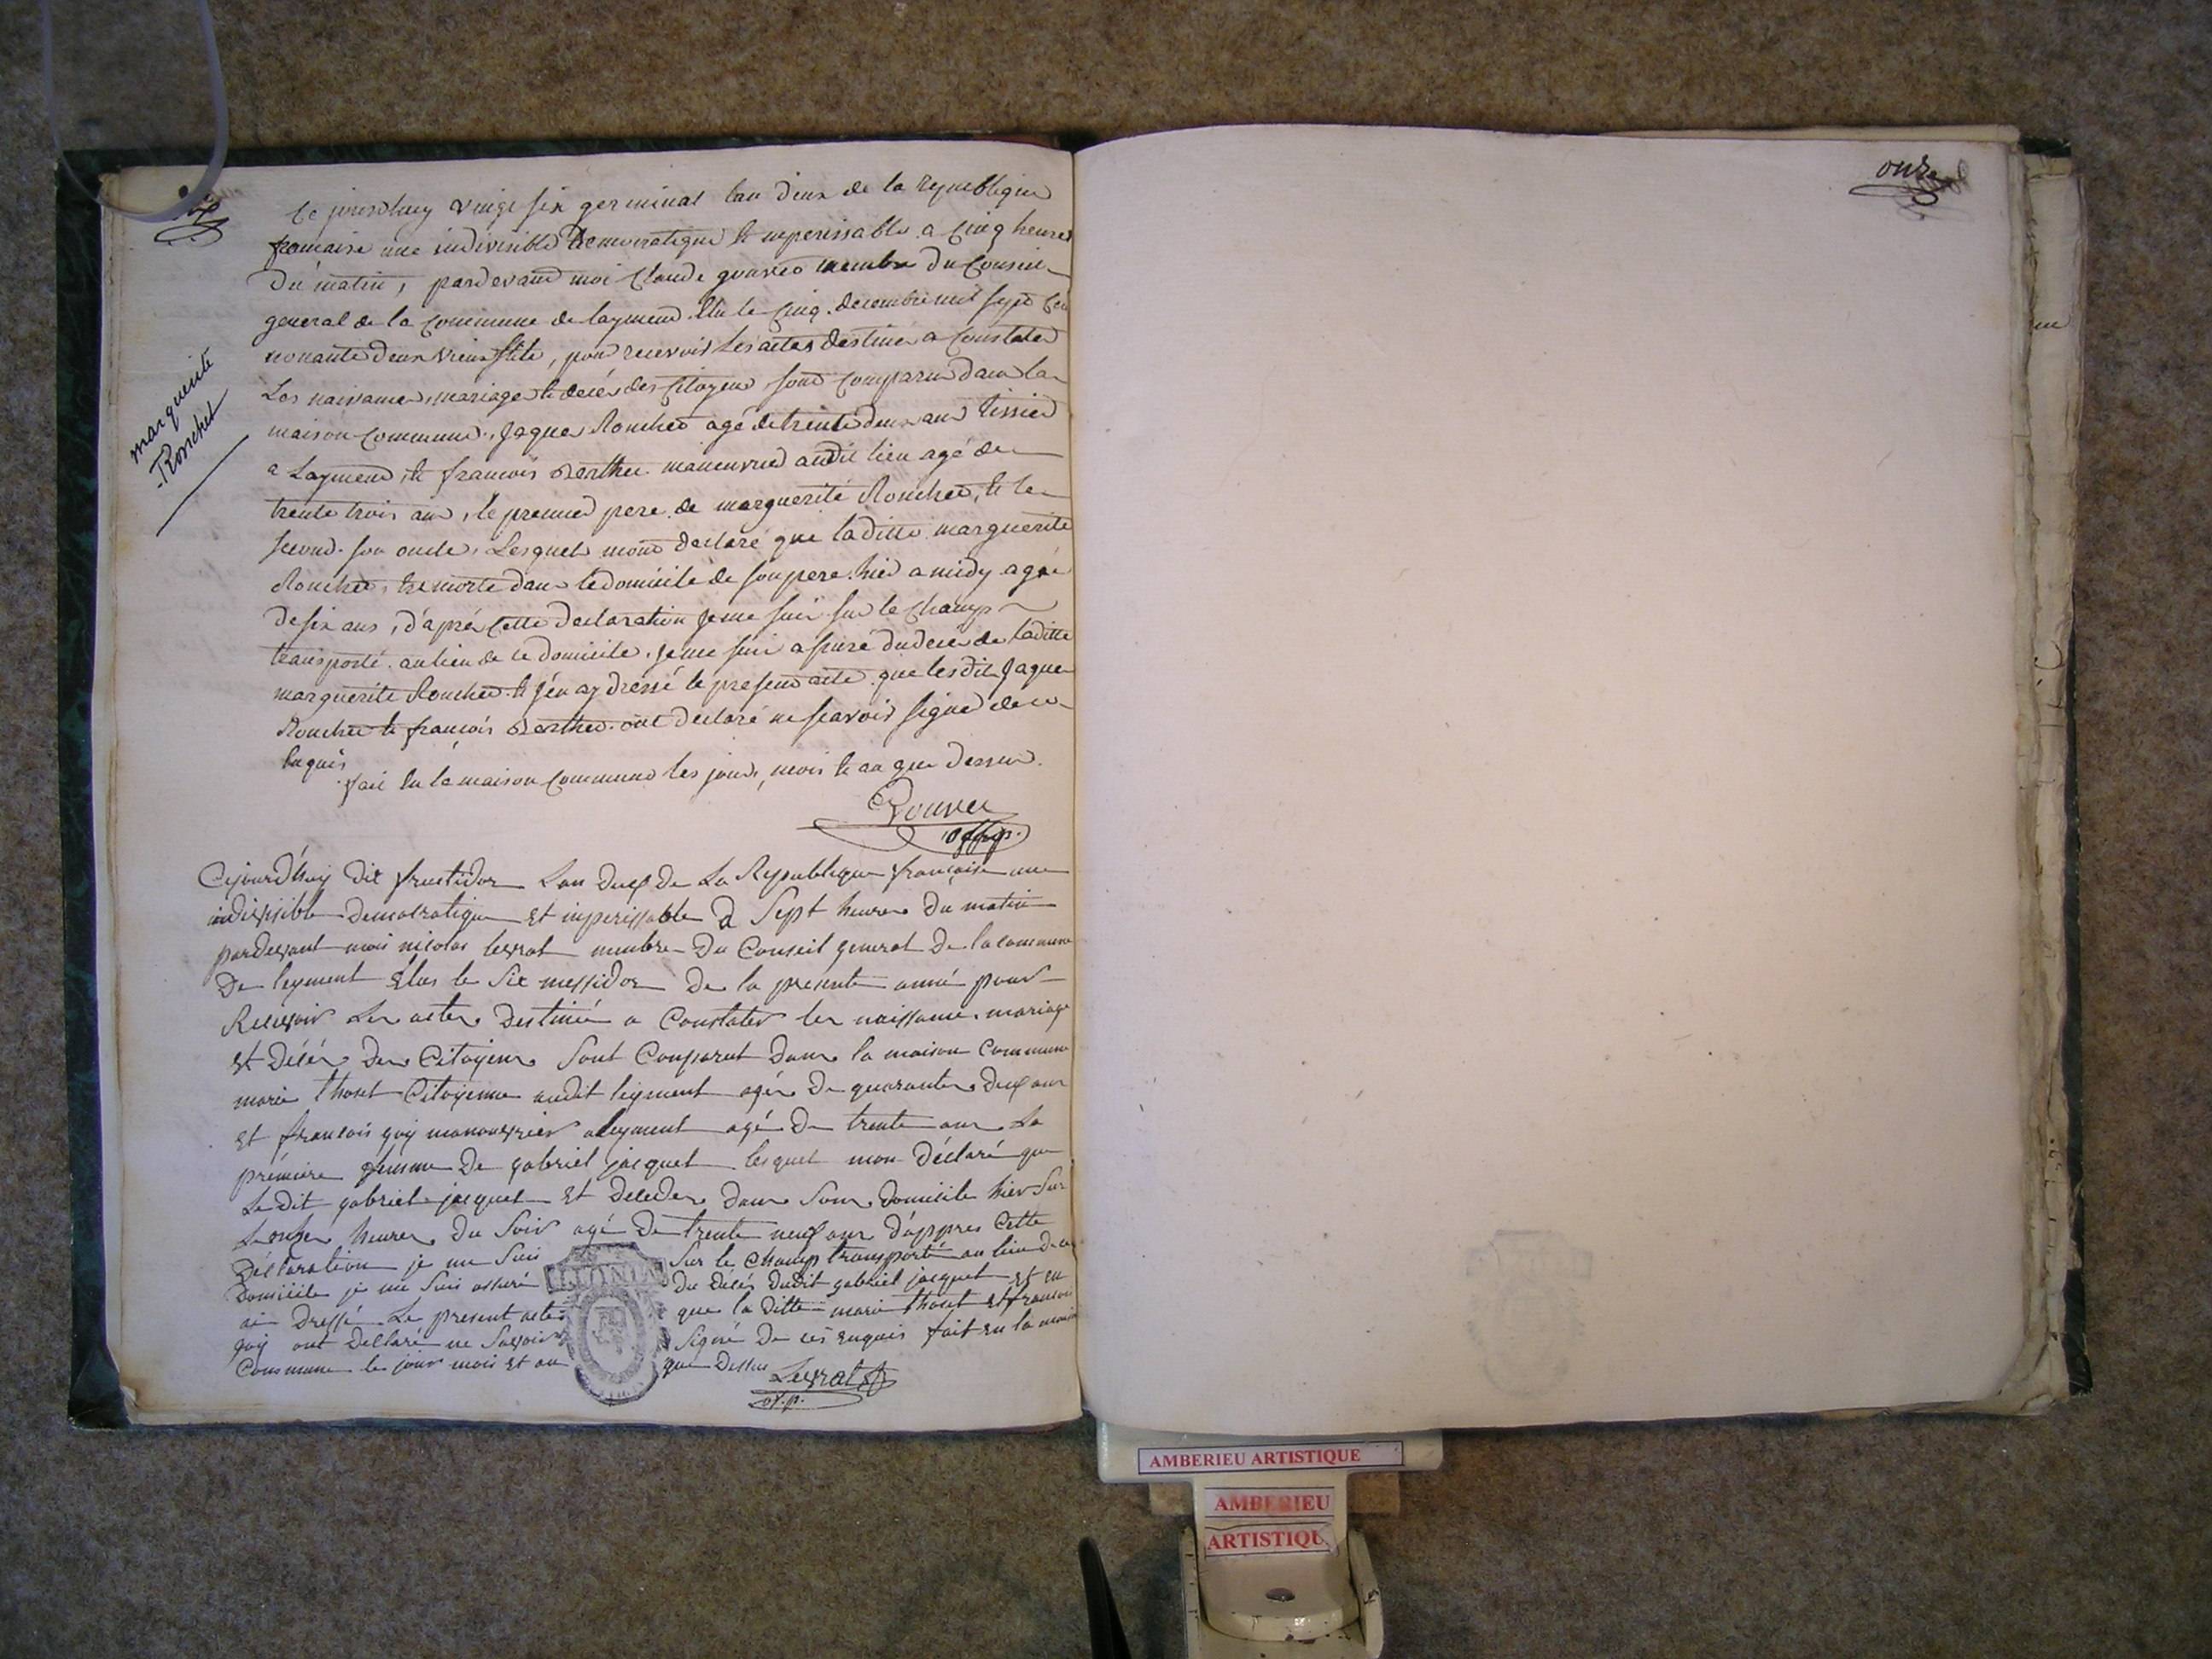 Ce jourdhuy vingt six germinal lan deux de la republique
francaise une indivisible democratique et imperissable a cinq heures
du matin, pardevant moi Claude gouvet membre du Conseil
general de la commune de layment élu le cinq decembre mil sept cen
nonante deux vieux stile, pour recevoir les actes destiné a constater
Les naissances, mariage et decés des citoyens sont comparu dans la
maison commune, Jaques Ronchet agé de trente deux ans tissier
a Layment, et francois Berthet maneuvrier audit lieu agé de
trente trois ans, le premier pere de marguerite Ronchet, et le
second son oncle, Lesquels mont declaré que laditte marguerite
Ronchet, est morte dans le domicile de son pere hier a midy agée
de six ans, d'aprés cette declaration je me suis sur le champ
transporté au lieu de ce domicile, je me suis assuré du deces de laditte
marguerite Ronchet et j'en ay dressé le present acte que lesdits Jaques
Ronchet et francois Berthet ont declaré ne scavoir signer de ce
enquis
fait en la maison commune les jours, mois et an que dessus.
Gouvet
off. p.
marguerite
Ronchet
Cejourd'huy dix fructidor Lan deux de La Republique française une
indivisible democratique et imperissable a Sept heures du matin
pardevant mois nicolas levrat membre Du Conseil general De la commune
De leyment Elus le Six messidor De la presente année pour
Recevoir Les actes Destinée a Constater les naissance, mariage
et Décés Des Citoyens Sont Comparut Dans la maison Commune
marie thoret Citoyenne audit leyment agée De quarante Deux ans
et francois guy manouvrier a leyment agé De trente ans La
premiere femme De gabriel jacquet lesquel mon déclaré que
Le dit gabriel jacquet Et Decedé dans Son Domicile hier Sur
Le onze heures Du Soir agé De trente neuf ans d'appres Cette
Déclaration je me Suis Sur le Champ transporté au lieu de ce
Domicile je me Suis assuré Du décés Dudit gabriel jacquet et en
ai Dressé Le present acte que la Ditte marie thoret et francois
guy ont Declaré ne Savoir Signé De ces enquis fait en la maison
Commune le jour mois et an que Dessus
Levrat
of. p.
onze
AMBERIEU ARTISTIQUE
AMBERIEU
ARTISTIQU